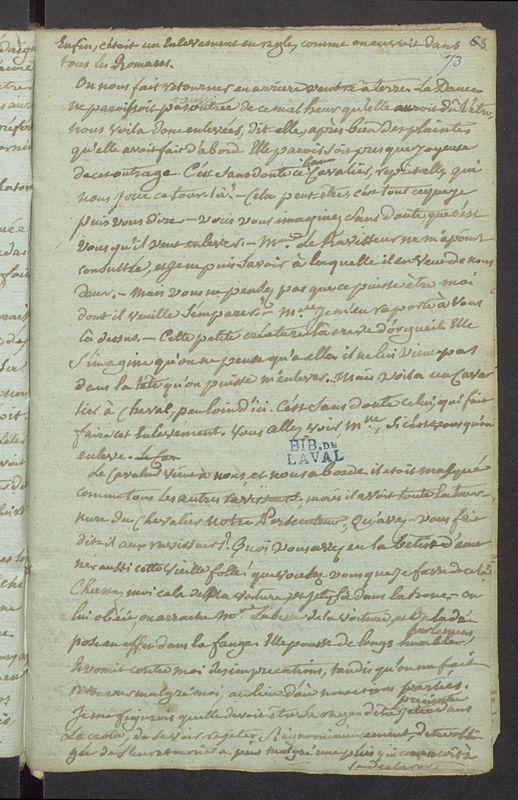 Enfin, c'étoit un Enlevement en regles comme on en voit dans 63
tous les Romans. 73
On nous fait retourner en arriere ventre à terre. La Dame
ne paroissoit pas outrée de ce malheur qu'elle auroit dû être
nous voila donc enlevées, dit-elle, après bien des plaintes
qu'elle avoit fait d'abord. Elle paroissoit presque joyeuse
de cet outrage. C'est sans doute ce beau Cavalier, reprit-elle, qui
nous joue ce tour-là? – Cela peut-être, c'est tout ce que je
puis vous dire. – Vous vous imaginez sans doute que c'est
vous qu'il veut enlever. – Mme. Le Ravisseur ne m'a point
consultée, et je ne puis savoir à laquelle il en veut de nous
deux. – Mais vous ne pensez pas que ce puisse être moi
dont il veuille s'emparer? – Mme. Je m'en raporte à vous
là dessus. – Cette petite créature là creve d'orgueil. Elle
s'imagine qu'on ne pense qu'à elle; il ne lui vient pas
dans la tête qu'on puisse m'enlever... Mais voila un Cava-
lier à Cheval, peu loin d'ici. C'est sans doute celui qui fait
faire cet Enlevement. Vous allez voir Mlle, si c'est vous qu'on
enleve.
BIB. DE
LAVAL
Le Cavalier vient à nous, et nous aborde. il étoit masqué
comme tous les autres ravisseurs, mais il avoit toute la tour-
nure du Chevalier notre Persecuteur. Qu'avez-vous fait
dit-il aux ravisseurs? Quoi vous avez eu la bêtise d'ame-
ner aussi cette vieille folle! que voulez vous que je fasse de cela?
Chassez moi cela de ma voiture, et jetez là dans la boue, – on
lui obéit, on arrache Mme de la voiture, et on la dé-
pose en effet dans la fange. Elle pousse de longs hurlemens,
et vomit contre moi des imprecations, tandis qu'on me fait
retourner malgré moi, au lieu d'où nous étions parties.
Je me figurois quelle devoit être la rage d'être précipitée dans
la crotte, de se voir rejeter si ignominieusement,